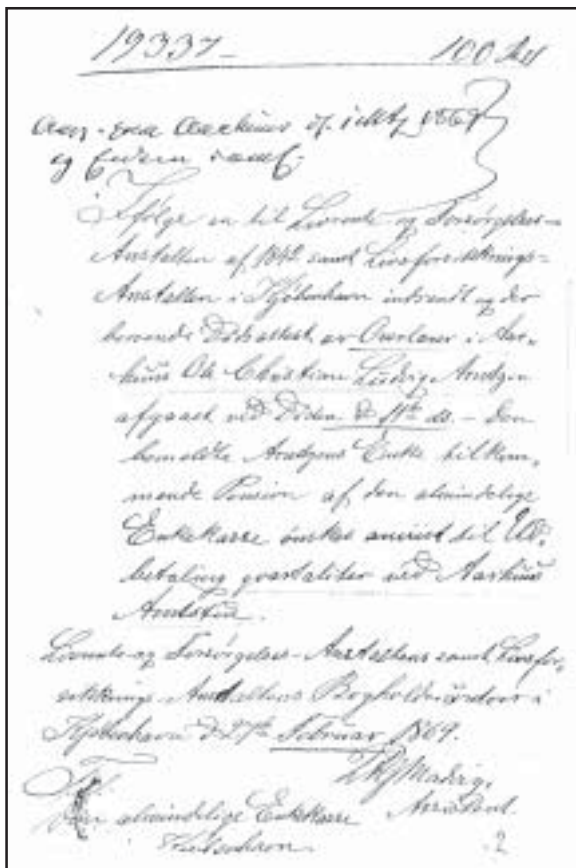 19337 - 100
og
Ifølge en til Livrente og Forsørgelses=
Anstalten af 1842 samt Livsforsikkrings=
Anstalten i Kjøbenhavn indsendt og der
beroende Dødsattest er Overlærer i Aar-
huus Ole Christian Ludvig Arntzen
afgaaet ved Døden d 11te ds. - Den
bemeldte Arntzens Enke tilkom-
mende Pension af den almindelige
Enkekasse ønskes anviist til Ud-
betaling qvartaliter ved Aarhuus
Amtstue.
Livrente og Forsørgelses-Anstaltens samt Livsfor-
sikkrings-Anstaltens Bogholdercontoir i
Kjøbenhavn d 27de Februar 1869.
Madvig,
Til Assistent.
Den almindelige Enkekasse
Kjøbenhavn.
2